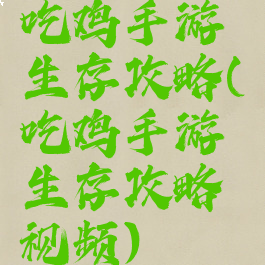 吃鸡手游
生存攻略(
吃鸡手游
生存攻略
视频)